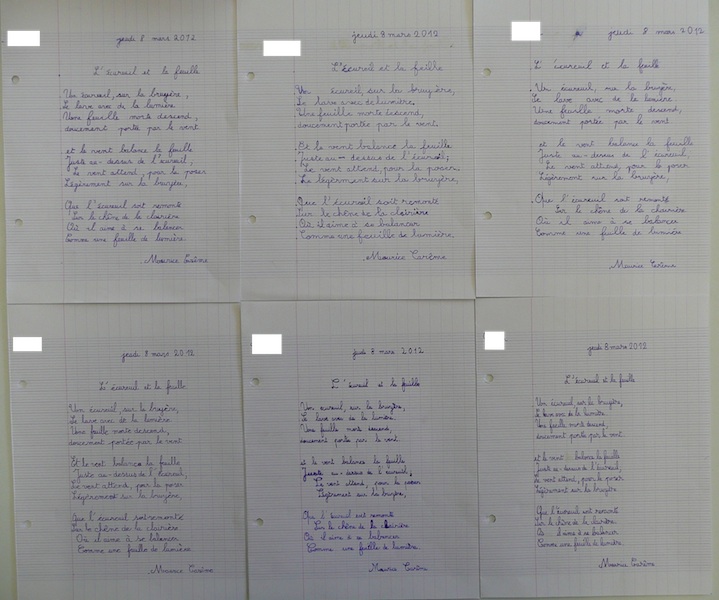 jeudi 8 mars 2012
L'écureuil et la feuille
Un écureuil, sur la bruyère,
Se lave avec de la lumière.
Une feuille morte descend,
doucement portée par le vent.
et le vent balance la feuille
Juste au-dessus de l'écureuil,
Le vent attend, pour la poser
Légèrement sur la bruyère,
Que l'écureuil soit remonté
Sur le chêne de la clairière
Où il aime à se balancer
Comme une feuille de lumière.
Maurice Carême
jeudi 8 mars 2012
L'écureuil et la feuille
Un écureuil, sur la bruyère,
Se lave avec de lumière,
Une feuille morte descend,
doucement portée par le vent.
Et le vent balance la feuille
Juste au-dessus de l'écureuil;
Le vent attend, pour la poser
Le légèrement sur la bruyère,
Que l'écureuil soit remonté
Sur le chêne de la clairière
Où il aime à se balancer
Comme une feuille de lumière.
Maurice Carême
jeudi 8 mars 2012
L'écureuil et la feuille
Un écureuil, sur la bruyère,
Se lave avec de la lumière.
Une feuille morte descend,
doucement portée par le vent
et le vent balance la feuille
Juste au-dessus de l'écureuil,
Le vent attend, pour la poser
Légèrement sur la bruyère,
Que l'écureuil soit remonté
Sur le chêne de la clairière
Où il aime à se balancer
Comme une feuille de lumière
Maurice Carême
jeudi 8 mars 2012
L'écureuil et la feuille
Un écureuil, sur la bruyère,
Se lave avec de la lumière
Une feuille morte descend,
doucement portée par le vent
Et le vent balance la feuille
Juste au-dessus de l'écureuil,
Le vent attend, pour la poser
Légèrement sur la bruyère,
Que l'écureuil soit remonté
Sur le chêne de la clairière
Où il aime à se balancer
Comme une feuille de lumière
Maurice Carême
jeudi 8 mars 2012
L'écureuil et la feuille
Un écureuil, sur la bruyère,
Se lave avec de la lumière.
Une feuille morte descend,
doucement portée par le vent.
et le vent balance la feuille
Juste au-dessus de l'écureuil;
Le vent attend, pour la poser
Légèrement sur la bruyère,
Que l'écureuil soit remonté
Sur le chêne de la clairière
Où il aime à se balancer
Comme une feuille de lumière.
Maurice Carême
jeudi 8 mars 2012
L'écureuil et la feuille
Un écureuil, sur la bruyère,
Se lave avec de la lumière.
Une feuille morte descend,
doucement portée par le vent.
et le vent balance la feuille
Juste au-dessus de l'écureuil,
Le vent attend, pour la poser
Légèrement sur la bruyère
Que l'écureuil soit remonté
Sur le chêne de la clairière.
Où il aime à se balancer
Comme une feuille de lumière.
Maurice Carême